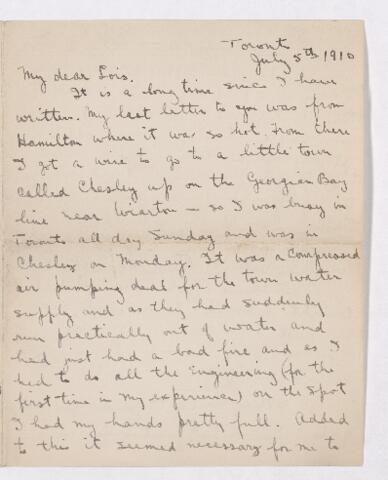 Toronto
July 5th 1910
My dear Lois.
It is a long time since I have
written. My last letter to you was from
Hamilton where it was so hot. From there
I got a wire to go to a little town
called Chesley up on the Georgian Bay
line near Wiarton — so I was busy in
Toronto all day Sunday and was in
Chesley on Monday. It was a compressed
air pumping deal for the town water
supply and as they had suddenly
run practically out of water and
had just had a bad fire and as I
had to do all the Engineering (for the
first time in my experience) on the spot
I had my hands pretty full. Added
to this it seemed necessary for me to